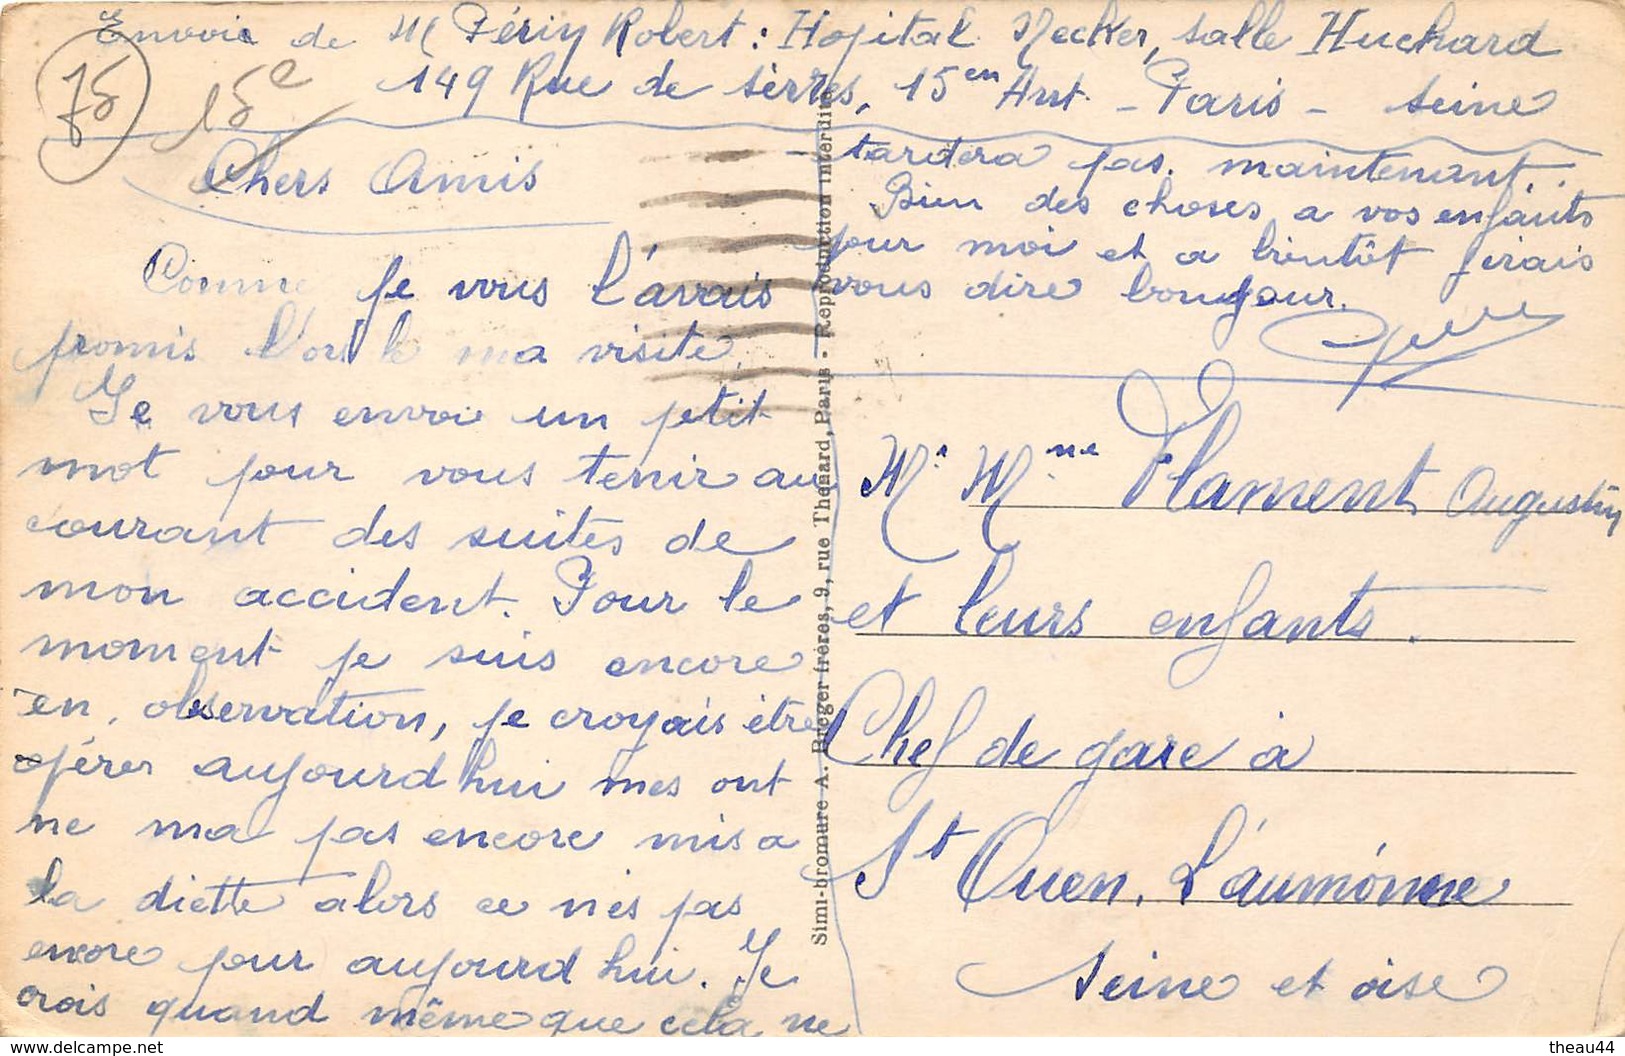 Envoie de M Périn Robert : Hopital Necker, salle Huchard
149 Rue de sèvres, 15en Arrt - Paris - seine
75
15e
Chers Amis
Comme Je vous l'avais
promis l'ors de ma visite,
Je vous envoi un petit
mot pour vous tenir au
courant des suites de
mon accident. Pour le
moment je suis encore
en, observation, je croyais être
opérer aujourd hui mes ont
ne ma pas encore mis a
la diette alors ce n'es pas
encore pour aujourd hui. Je
crois quand même que cela ne
tardera pas. maintenant.
Bien des choses a vos enfants
pour moi et a bientôt J'irais
vous dire bonjour.
Simi-bromure A. Breger frères, 9, rue Thénard, Paris - Reproduction interdite
Mr Mme Flament Augustin
et leurs enfants.
Chef de gare à
St Ouen. L'aumónne
Seine et oise
theau44